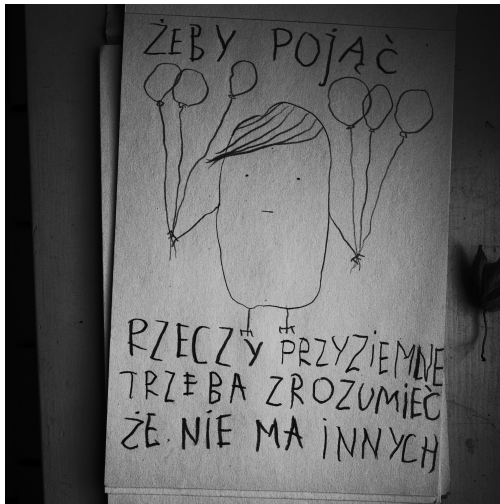 ŻEBY POJĄĆ
RZECZY PRZYZIEMNE
TRZEBA ZROZUMIEĆ
ŻE NIE MA INNYCH